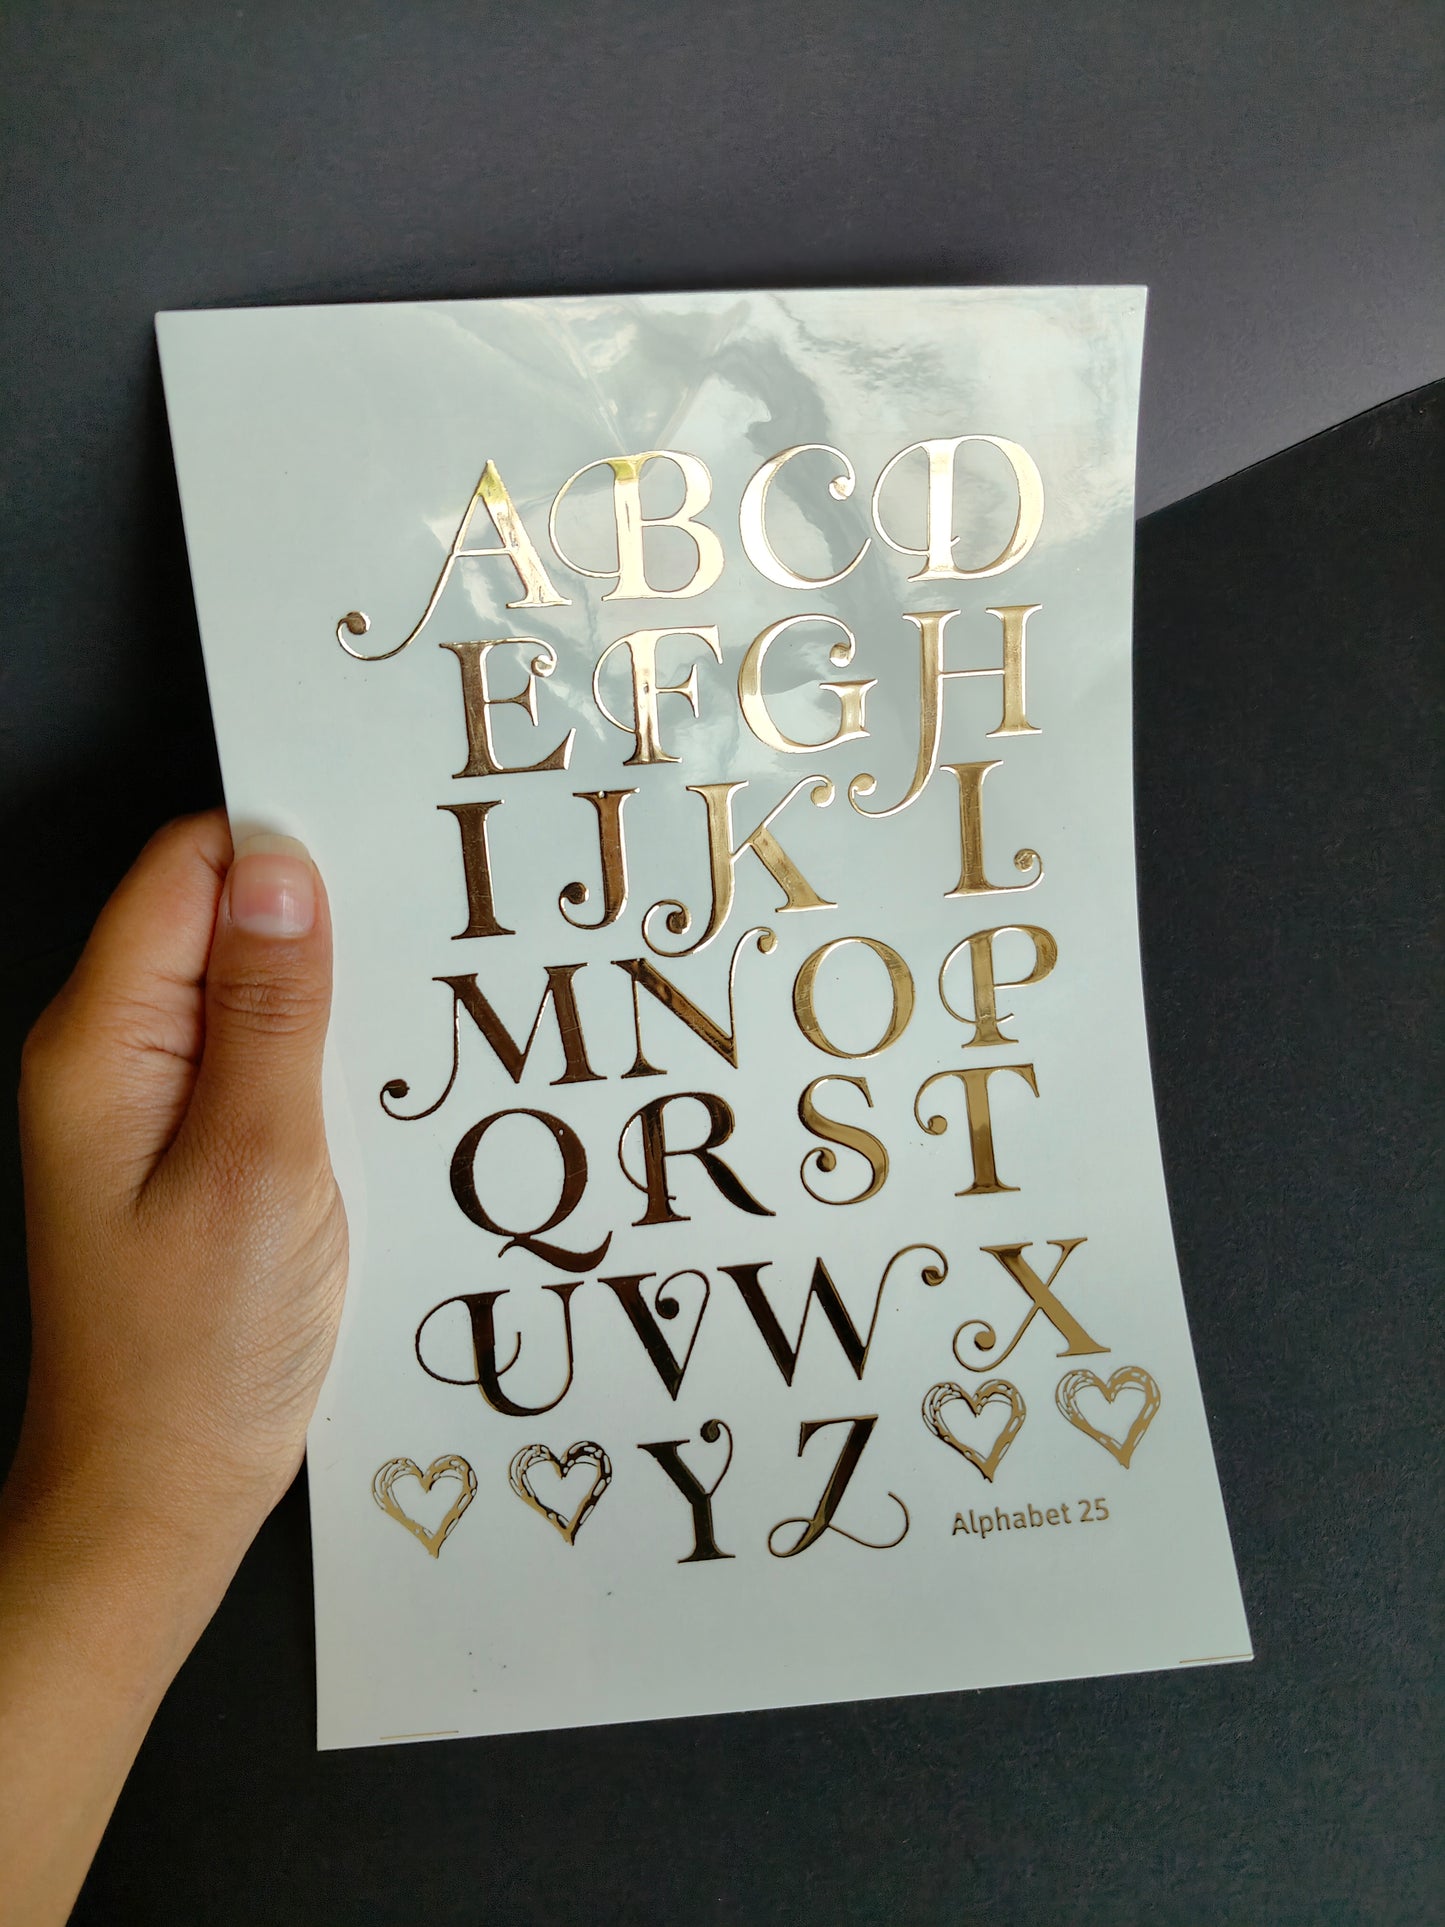 ABCD
EFGH
IJKL
MNOP
QRST
UVWX
YZ
Alphabet 25